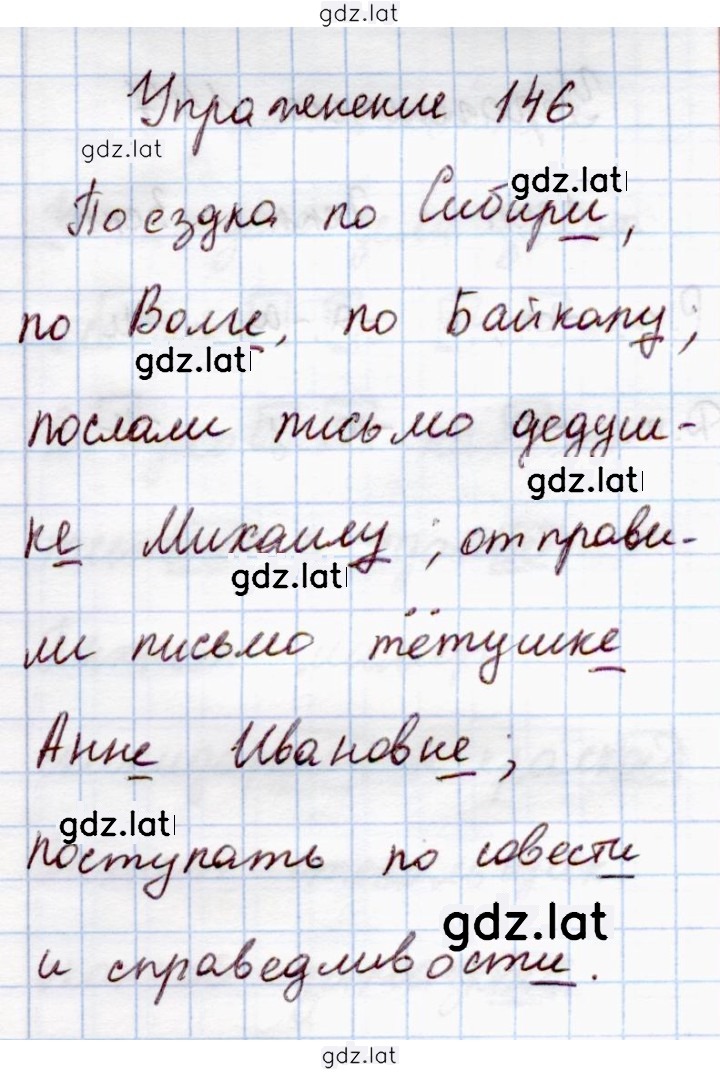 gdz.lat
Упражнение 146
gdz.lat
gdz.lat
Поездка по Сибири,
по Волге, по Байкалу;
gdz.lat
послали письмо дедуш-
gdz.lat
ке Михаилу; отправи-
gdz.lat
ли письмо тётушке
Анне Ивановне;
gdz.lat
поступать по совести
gdz.lat
и справедливости.
gdz.lat